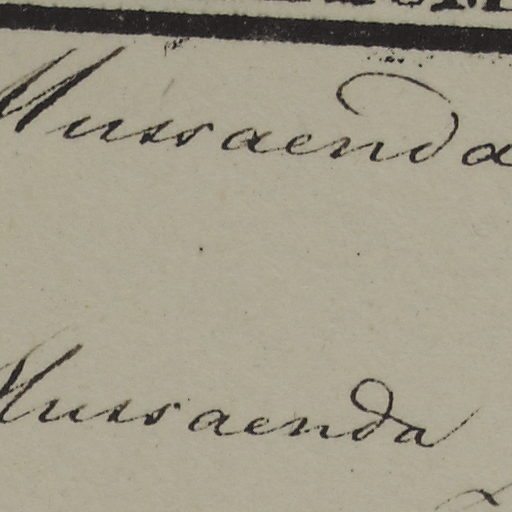 Mussaenda
Mussaenda